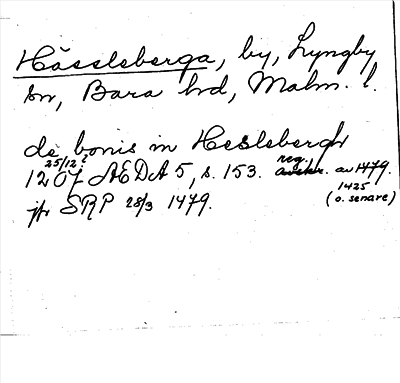 Hässleberga, by, Lyngby
sn, Bara hd, Malm. l.
de bonis in Heslebergh
25/12?
1207 AEDA 5, s. 153. reg. avskr. av 1479.
1425
(o. senare)
jfr SRP 28/3 1479.